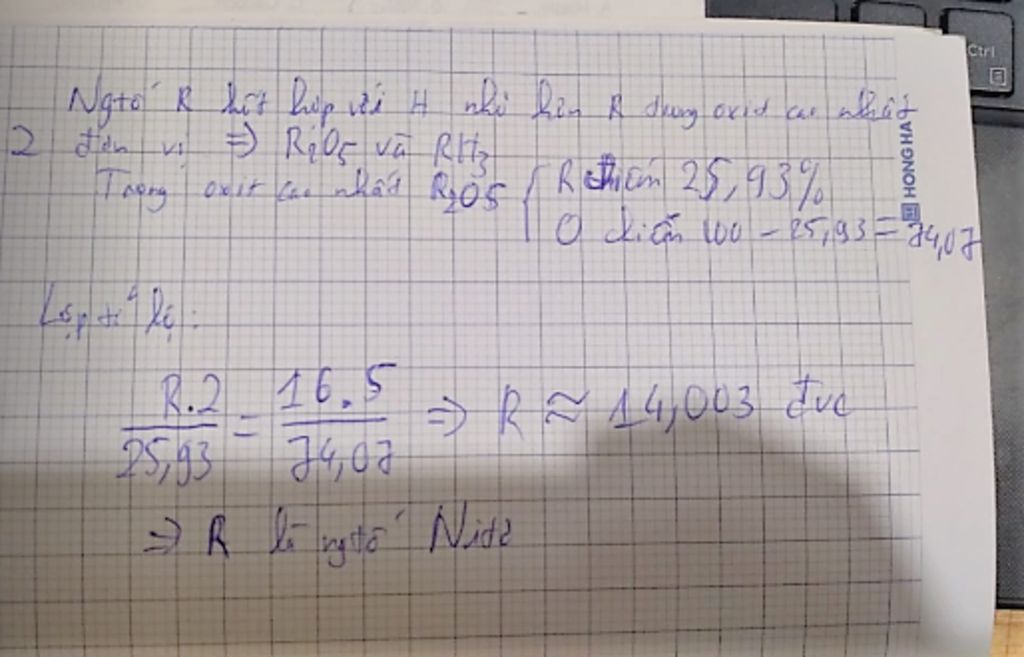 Ngtố R kết hợp với H nhỏ hơn R trong oxit cao nhất
2 đơn vị => R2O5 và RH3
Trong oxit cao nhất R2O5 { R chiếm 25,93%
O chiếm 100 - 25,93 = 74,07
Lập tỉ lệ:
R.2/25,93 = 16.5/74,07 => R ≈ 14,003 đvc
=> R là ngtố Nitơ
HONG HA
Ctrl